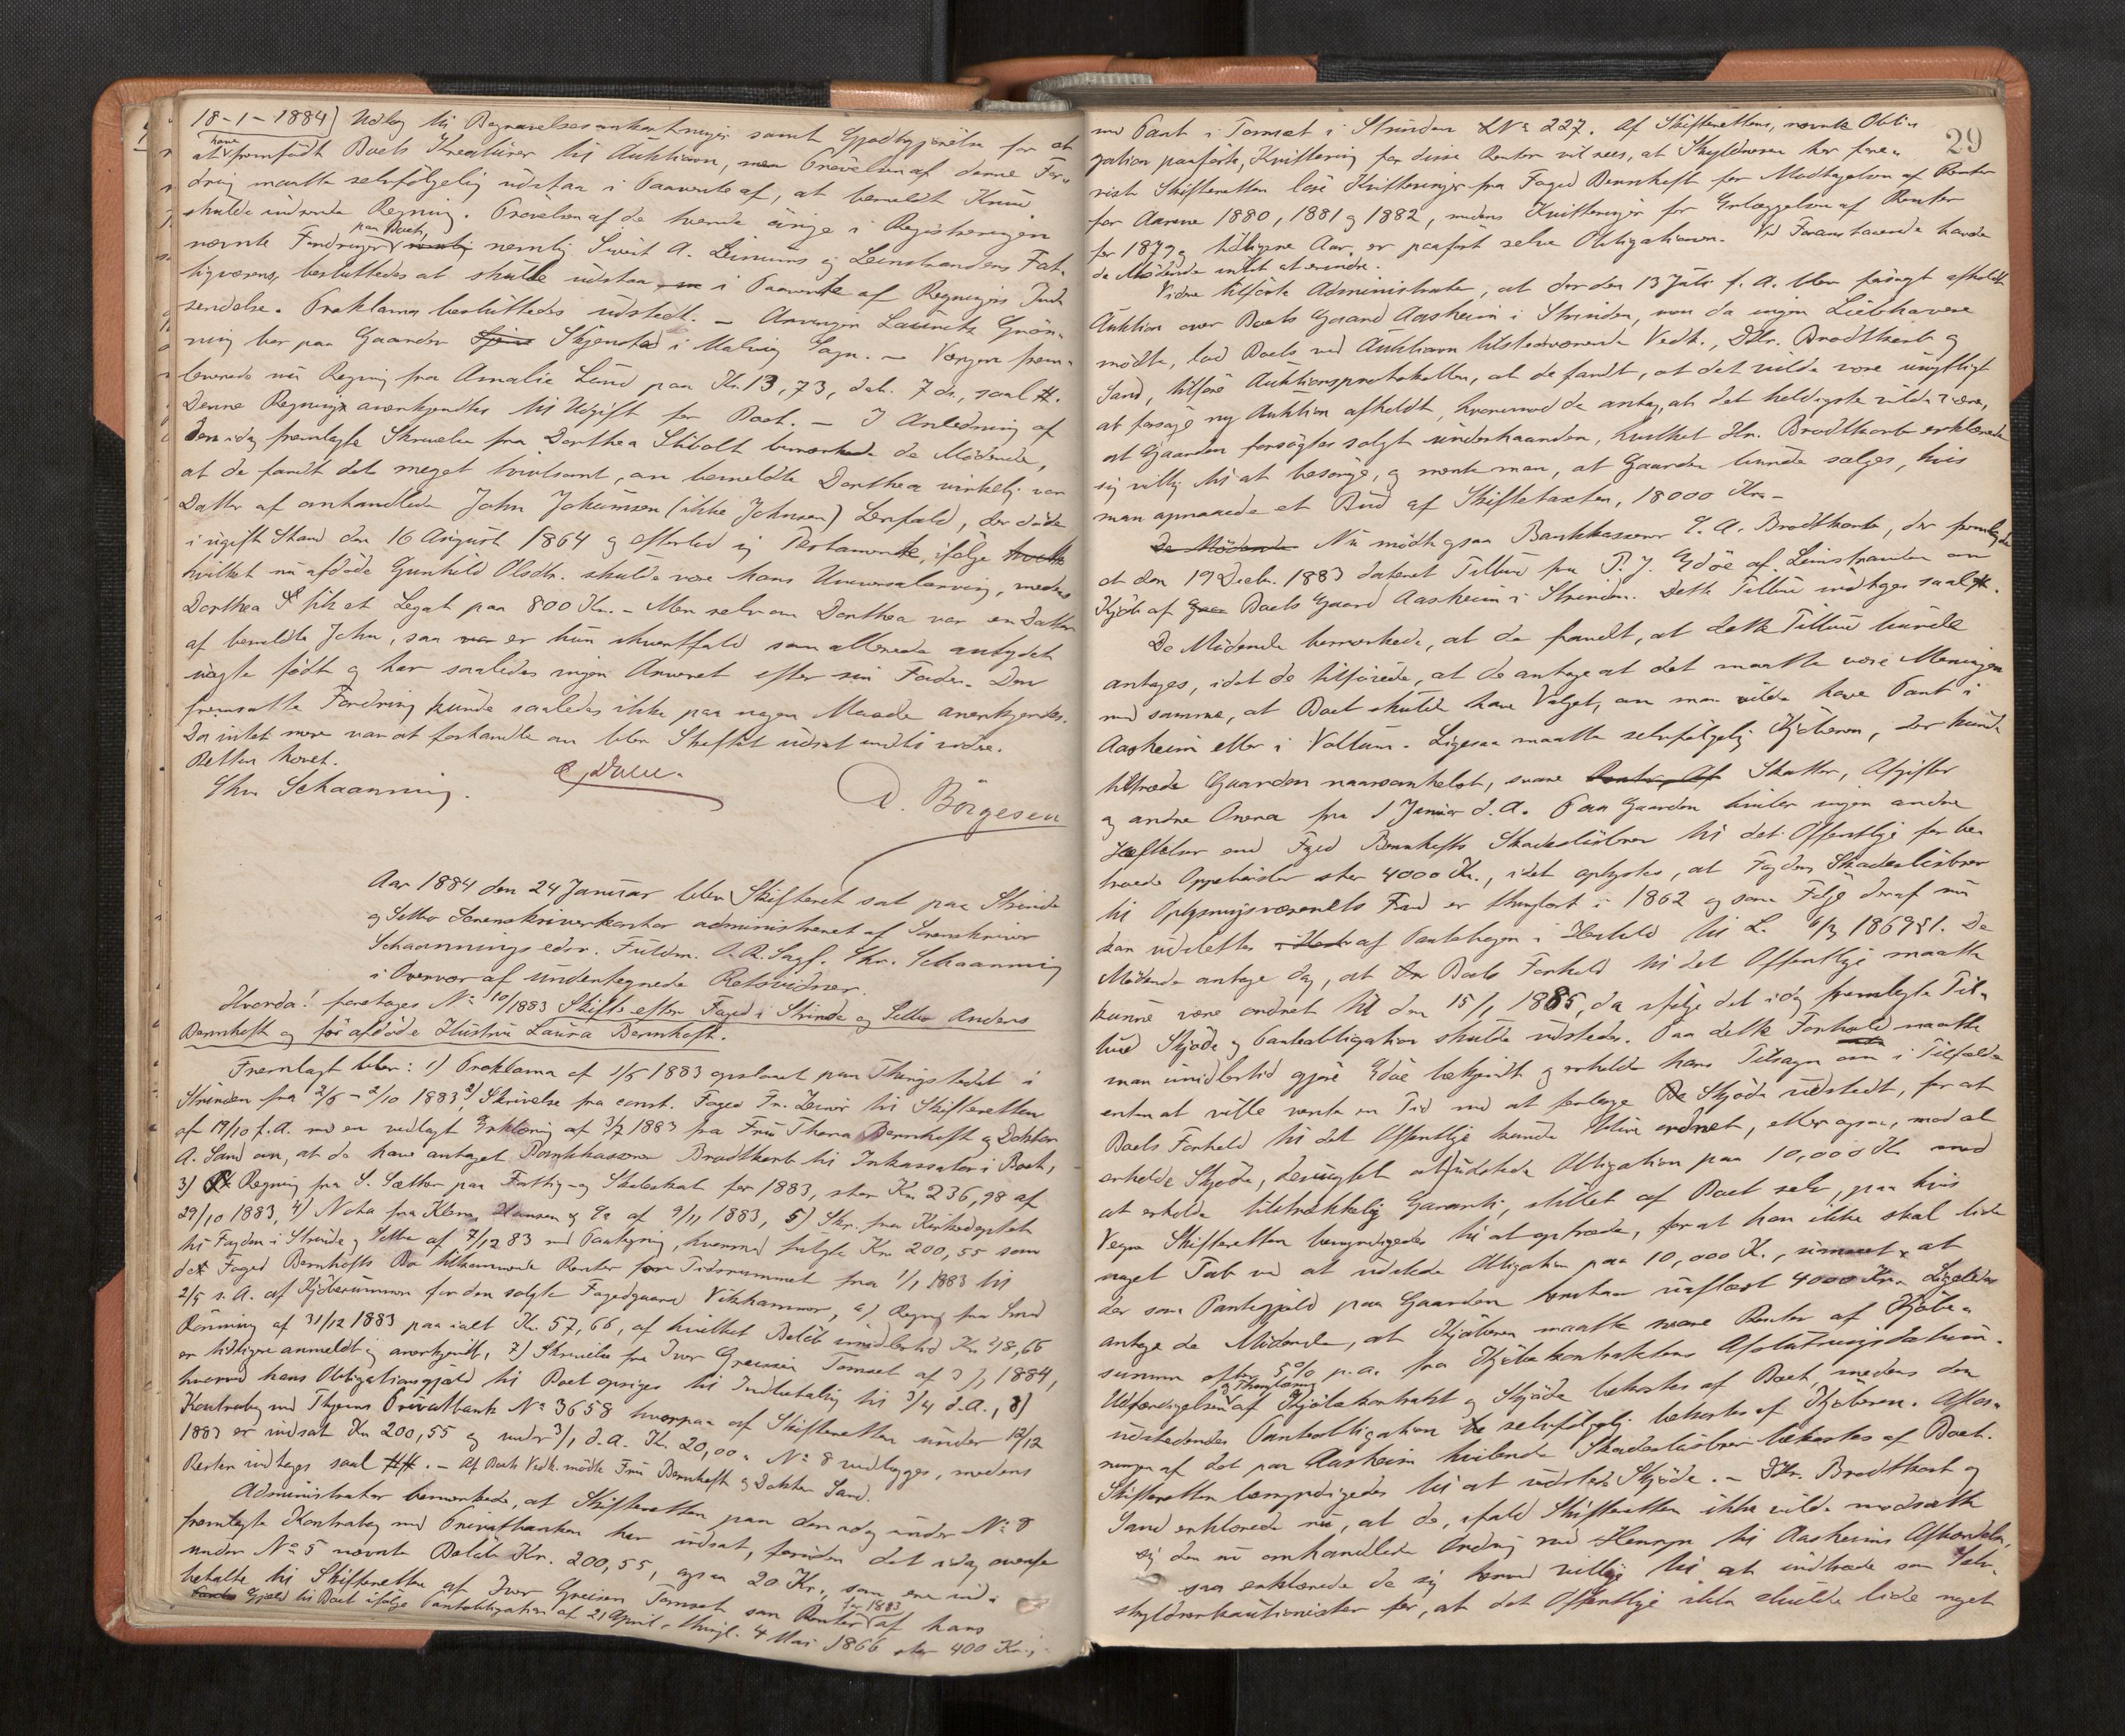 18-1-1884) Udlæg til Begravelsesomkostninger samt Godtgjörelse for at
have
at fremfödt Boets Kreatürer til Auktionen, men Prövelsen af denne For-
dring maatte selvfölgelig udstaa i Paavente af, at bemeldt Knud
skulde indsende Regning. Prövelsen af de hvende övrige i Registreringen
paa Boet,
nævnte Fordringer nemlig Sivert A. Leinums og Leinstrandens Fat-
tigvæsens, besluttedes at skulle udstaa i Paavente af Regningers Ind-
sendelse. Proklama besluttedes udstedt. – Arvingen Laurits Grön-
ning bor paa Gaarden Skjenstad i Malvig Sogn. – Værgen frem-
leverede nu Regning fra Amalie Lund paa Kr. 13,73, dat. 7 ds., saal. #.
Denne Regning anerkjendtes til Udgift for Boet. – I Anledning af
den idag fremlagte Skrivelse fra Dorthea Stibolt bemærkede de Mödende,
at de fandt det meget tvivlsomt, om bemeldte Dorthea virkelig var
Datter af omhandlede John Jokumsen (ikke Johnsen) Lerfald, der döde
i ugift Stand den 16 August 1864 og efterlod sig Testamente, ifölge
hvilket nu afdöde Gunhild Olsdtr. skulde være hans Universalarving, medens
Dorthea S fik et Legat paa 800 Kr. – Men selv om Dorthea var en Datter
af bemeldte John, saa er hun ihvertfald som allerede antydet
uægte födt og har saaledes ingen Arveret efter sin Fader. Den
fremsatte Fordring kunde saaledes ikke paa nogen Maade anerkjendes.
Da intet mere var at forhandle om blev Skiftet udsat indtil videre.
Retten hævet.
Chr. Schaanning.
A. Börgesen
Aar 1884 den 24 Januar blev Skifteret sat paa Strinde
og Selbo Sorenskriverkontor administreret af Sorenskriver
Schaannings edsv. Fuldm. O.R.Sagf. Chr. Schaanning
i Overvær af undertegnede Retsvidner.
Hvorda! foretoges No 10/1883 Skifte efter Foged i Strinde og Selbo Anders
Bernhoft og för afdöde Hustru Laura Bernhoft.
Fremlagt blev: 1) Proklama af 1/6 1883 opslaaet paa Thingstedet i
Strinden fra 2/6 – 2/10 1883, 2) Skrivelse fra const. Foged Fr. Zeiner til Skifteretten
af 19/10 f.A. med en vedlagt Erklæring af 3/7 1883 fra Fru Thora Bernhoft og Doktor
A. Sand om, at de have antaget Bankkasserer Brodtkorb til Inkassator i Boet,
3) Regning fra S. Sætter paa Fattig- og Skoleskat for 1883, stor Kr. 236,98 af
29/10 1883, 4) Nota fra Klem, Hansen & Co af 9/11 1883, 5) Skr. fra Kirkedeptet
til Fogden i Strinde og Selbo af 7/12 83 med Paategning, hvormed fulgte Kr. 200,55 som
det Foged Bernhofts Bo tilkommende Renter for Tidsrummet fra 1/1 1883 til
2/5 s. A. af Kjöbesummen for den solgte Fogedgaard Vikhammer, 6) Regning fra Smed
Rönning af 31/12 1883 paa ialt Kr. 57,66, af hvilket Belöb imidlertid Kr. 48,66
er tidligere anmeldt og anerkjendt, 7) Skrivelse fra Iver Greisen Tomset af 3/1 1884,
hvorved hans Obligationsgjæld til Boet opsiges til Indbetaling til 3/4 d.A., 8)
Kontrabog med Thjems Privatbank No 3658 hvorpaa af Skifteretten under 12/12
1883 er indsat Kr. 200,55 og under 3/1 d.A. Kr. 20,00. No 8 vedlægges, medens
Resten indtages saal. ##. – Af Boets Vedk. mödte Fru Bernhoft og Doktor Sand.
Administrator bemærkede, at Skifteretten paa den idag under No 8
fremlagte Kontrabog med Privatbanken har indsat, foruden det idag ovenfor
under No 5 nævnte Belöb Kr. 200,55, ogsaa 20 Kr., som ere ind-
for 1883
betalte til Skifteretten af Iver Greisen Tomset som Renter af hans
Gjæld til Boet ifölge Pantobligation af 21 April, thingl. 4 Mai 1866 stor 400 Kr.,
29
med Pant i Tomset i Strinden LNo 227. Af Skifterettens, nævnte Obli-
gation paaförte, Kvittering for disse Renter vil sees, at Skyldneren har fore-
vist Skifteretten löse Kvitteringer fra Foged Bernhoft for Modtagelsen af Renter
for Aarene 1880, 1881 og 1882, medens Kvitteringer for Erlæggelsen af Renter
for 1879 og tidligere Aar, er paafört selve Obligationen. Ved Foranstaaende havde
de Mödende intet at erindre.
Videre tilförte Administrator, at der den 13 Juli f. A. blev forsögt afholdt
Auktion over Boets Gaard Aasheim i Strinden, men da ingen Liebhavere
mödte, lod Boets ved Auktionen tilstedeværende Vedk., DHr. Brodtkorb og
Sand, tilföre Auktionsprotokollen, at de fandt, at det vilde være unyttigt
at forsöge ny Auktion afholdt, hvorimod de antog, at det heldigste vilde være,
at Gaarden forsögtes solgt underhaanden, hvilket Hr. Brodtkorb erklærede
sig villig til at besörge, og mente man, at Gaarden burde sælges, hvis
man opnaaede et Bud af Skiftetaxten, 18000 Kr. –
De Mödende Nu mödte ogsaa Bankkasserer E. A. Brodtkorb, der fremlagde
et den 19 Decbr. 1883 dateret Tilbud fra P. J. Edöe af Leinstranden om
Kjöb af Boets Gaard Aasheim i Strinden. Dette Tilbud indtages saal. #.
De Mödende bemærkede, at de fandt, at dette Tilbud burde
antages, idet de tilföiede, at de antoge at det maatte være Meningen
med samme, at Boet skulde have Valget, om man vilde have Pant i
Aasheim eller i Voltum. Ligesaa maatte selvfölgelig Kjöberen, der kunde
tiltræde Gaarden naarsomhelst, svare Skatter, Afgifter
og andre Onera fra 1 Januar d. A. Paa Gaarden hviler ingen andre
Heftelser end Foged Bernhofts Skadeslösbrev til det Offentlige for be-
troede Oppebörsler stor 4000 Kr., idet oplystes, at Fogdens Skadeslösbrev
til Oplysningsvæsenets Fond er thinglæst i 1862 og som Fölge deraf nu
kan udslettes af Pantebogen i Henhold til L. 6/3 1869 § 1. De
Mödende antoge dog, at Boets Forhold til det Offentlige maatte
kunne være ordnet til den 15/1 1885, da ifölge det idag fremlagte Til-
bud Skjöde og Pantobligation skulde udstedes. Paa dette Forhold maatte
man imidlertid gjöre Edöe bekjendt og erholde hans Tilsagn om i Tilfælde
enten at ville vente en Tid med at forlange Skjöde udstedt, for at
Boets Forhold til det Offentlige kunde blive ordnet, eller ogsaa, mod at
erholde Skjöde, desuagtet at udstede Obligation paa 10,000 Kr. mod
at erholde tilstrækkelig Garanti, stillet af Boet selv, paa hvis
Vegne Skifteretten bemyndigedes til at optræde, for at han ikke skal lide
noget Tab ved at udstede Obligation paa 10,000 Kr., uanseet at
der som Pantegjæld paa Gaarden henstaar uaflæst 4000 Kr. Ligeledes
antoge de Mödende, at Kjöberen maatte svare Renter af Kjöbe-
summen efter 5% p. a. fra Kjöbekontraktens Afslutningsdatum.
og Thinglæsning
Udfærdigelsen af Kjöbekontrakt og Skjöde bekostes af Boet, medens den
udstedendes Pantobligation selvfölgelig bekostes af Kjöberen. Aflæs-
ningen af det paa Aasheim hvilende Skadeslösbrev bekostes af Boet.
Skifteretten bemyndigedes til at udstede Skjöde. – DHr. Brodtkorb og
Sand erklærede nu, at de, ifald Skifteretten ikke vilde modsætte
sig den nu omhandlede Ordning med Hensyn til Aasheims Afhændelse,
saa erklærede de sig herved villige til at indtræde som Selv-
skyldnerkautionister for, at det Offentlige ikke skulde lide noget